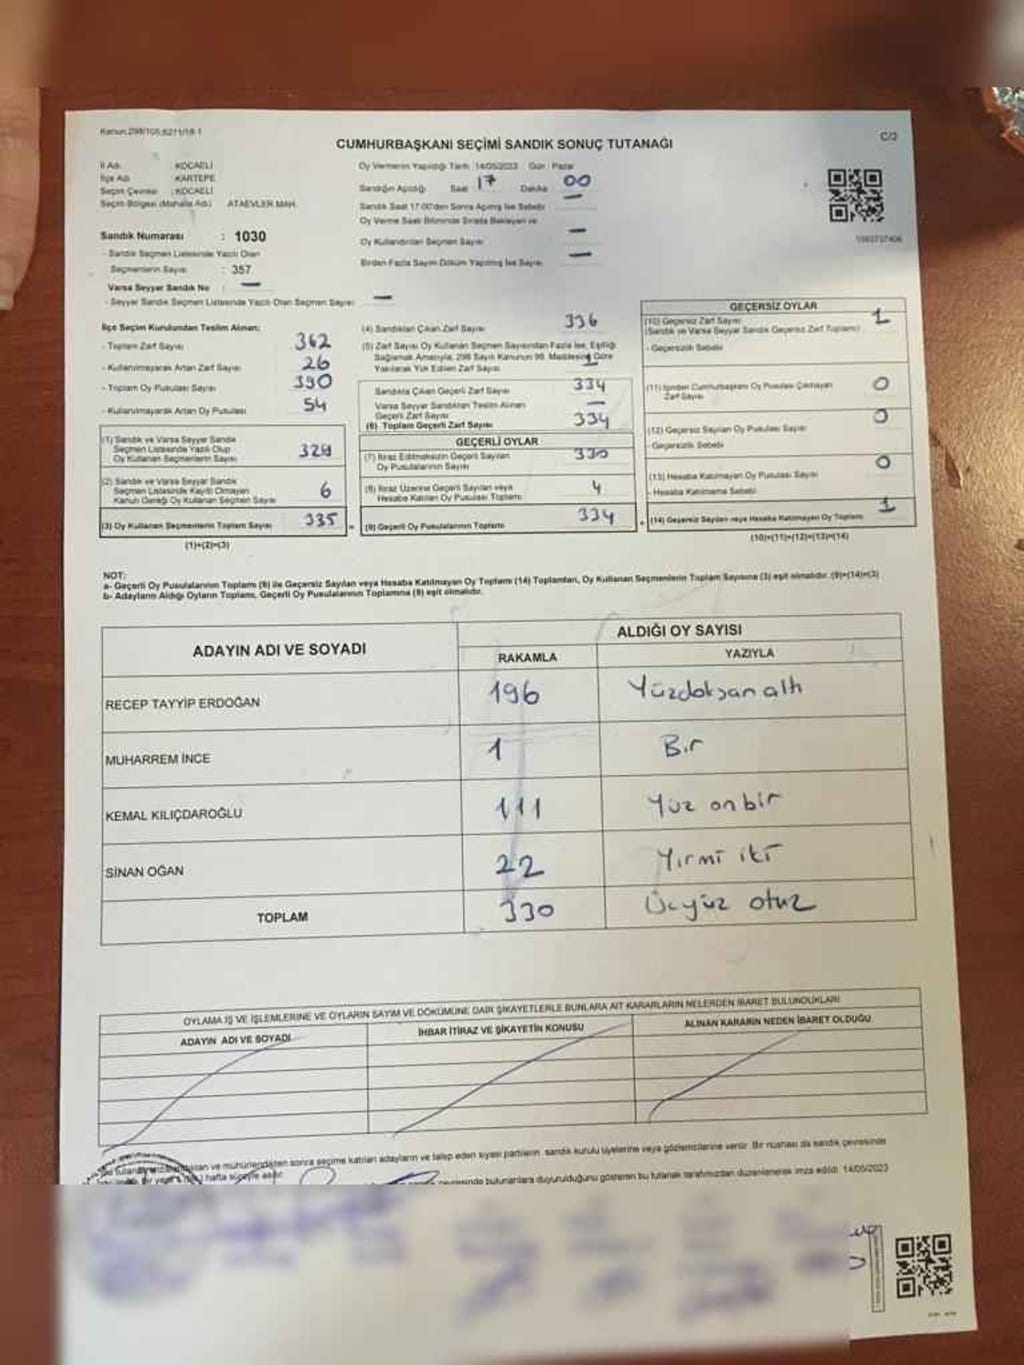 Kanun.298/105;6271/18-1
C/2
CUMHURBAŞKANI SEÇİMİ SANDIK SONUÇ TUTANAĞI
İl Adı : KOCAELİ
İlçe Adı : KARTEPE
Seçim Çevresi : KOCAELİ
Seçim Bölgesi (Mahalle Adı) ATAEVLER MAH.
Sandık Numarası : 1030
- Sandık Seçmen Listesinde Yazılı Olan
Seçmenlerin Sayısı : 357
Varsa Seyyar Sandık No : —
- Seyyar Sandık Seçmen Listesinde Yazılı Olan Seçmen Sayısı : —
Oy Vermenin Yapıldığı Tarih : 14/05/2023 Gün : Pazar
Sandığın Açıldığı Saat 17 Dakika 00
Sandık Saat 17.00'den Sonra Açılmış İse Sebebi —
Oy Verme Saati Bitiminde Sırada Bekleyen ve
Oy Kullandırılan Seçmen Sayısı —
Birden Fazla Sayım Döküm Yapılmış İse Sayısı —
İlçe Seçim Kurulundan Teslim Alınan:
- Toplam Zarf Sayısı 362
- Kullanılmayarak Artan Zarf Sayısı 26
- Toplam Oy Pusulası Sayısı 390
- Kullanılmayarak Artan Oy Pusulası 54
(1) Sandık ve Varsa Seyyar Sandık
Seçmen Listesinde Yazılı Olup
Oy Kullanan Seçmenlerin Sayısı 329
(2) Sandık ve Varsa Seyyar Sandık
Seçmen Listesinde Kayıtlı Olmayan
Kanun Gereği Oy Kullanan Seçmen Sayısı 6
(3) Oy Kullanan Seçmenlerin Toplam Sayısı 335
(1)+(2)=(3)
(4) Sandıktan Çıkan Zarf Sayısı 336
(5) Zarf Sayısı Oy Kullanan Seçmen Sayısından Fazla İse, Eşitliği
Sağlamak Amacıyla, 298 Sayılı Kanunun 98. Maddesine Göre
Yakılarak Yok Edilen Zarf Sayısı 1
Sandıkta Çıkan Geçerli Zarf Sayısı 334
Varsa Seyyar Sandıktan Teslim Alınan
Geçerli Zarf Sayısı —
(6) Toplam Geçerli Zarf Sayısı 334
GEÇERLİ OYLAR
(7) İtiraz Edilmeksizin Geçerli Sayılan
Oy Pusulalarının Sayısı 330
(8) İtiraz Üzerine Geçerli Sayılan veya
Hesaba Katılan Oy Pusulası Toplamı 4
(9) Geçerli Oy Pusulalarının Toplamı 334
GEÇERSİZ OYLAR
(10) Geçersiz Zarf Sayısı 1
(Sandık ve Varsa Seyyar Sandık Geçersiz Zarf Toplamı)
- Geçersizlik Sebebi
(11) İçinden Cumhurbaşkanı Oy Pusulası Çıkmayan
Zarf Sayısı 0
(12) Geçersiz Sayılan Oy Pusulası Sayısı 0
- Geçersizlik Sebebi
(13) Hesaba Katılmayan Oy Pusulası Sayısı 0
- Hesaba Katılmama Sebebi
(14) Geçersiz Sayılan veya Hesaba Katılmayan Oy Toplamı 1
(10)+(11)+(12)+(13)=(14)
NOT:
a- Geçerli Oy Pusulalarının Toplamı (9) ile Geçersiz Sayılan veya Hesaba Katılmayan Oy Toplamı (14) Toplamları, Oy Kullanan Seçmenlerin Toplam Sayısına (3) eşit olmalıdır. (9)+(14)=(3)
b- Adayların Aldığı Oyların Toplamı, Geçerli Oy Pusulalarının Toplamına (9) eşit olmalıdır.
ADAYIN ADI VE SOYADI
ALDIĞI OY SAYISI
RAKAMLA YAZIYLA
RECEP TAYYİP ERDOĞAN 196 Yüzdoksan altı
MUHARREM İNCE 1 Bir
KEMAL KILIÇDAROĞLU 111 Yüz onbir
SİNAN OĞAN 22 Yirmi iki
TOPLAM 330 Üçyüz otuz
OYLAMA İŞ VE İŞLEMLERİNE VE OYLARIN SAYIM VE DÖKÜMÜNE DAİR ŞİKAYETLERLE BUNLARA AİT KARARLARIN NELERDEN İBARET BULUNDUKLARI
ADAYIN ADI VE SOYADI İHBAR İTİRAZ VE ŞİKAYETİN KONUSU ALINAN KARARIN NEDEN İBARET OLDUĞU
sonra seçime katılan adayların ve talep eden siyasi partilerin sandık kurulu üyelerine veya gözlemcilerine verilir. Bir nüshası da sandık çevresinde
hafta süreyle asılır.
bulunanlara duyurulduğunu gösteren bu tutanak tarafımızdan düzenlenerek imza edildi. 14/05/2023